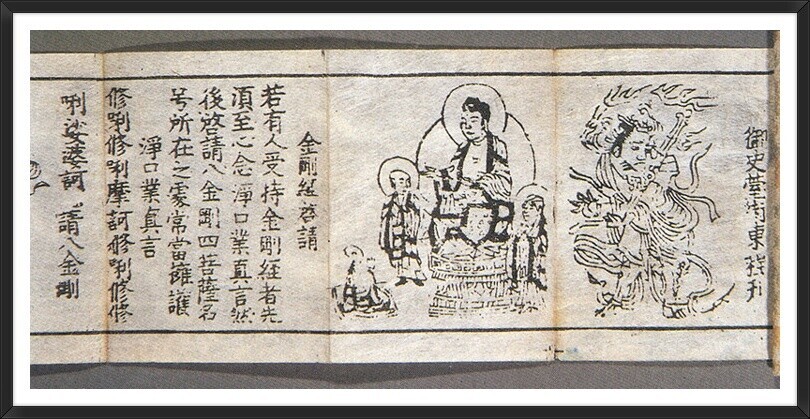 御史臺
金剛經啓請
若有人受持金剛經者先
湏至心念淨口業真言然
後啓請八金剛四菩薩名
号所在之處常當擁護
淨口業真言
修唎修唎摩訶修唎修修
唎娑婆訶 請八金剛